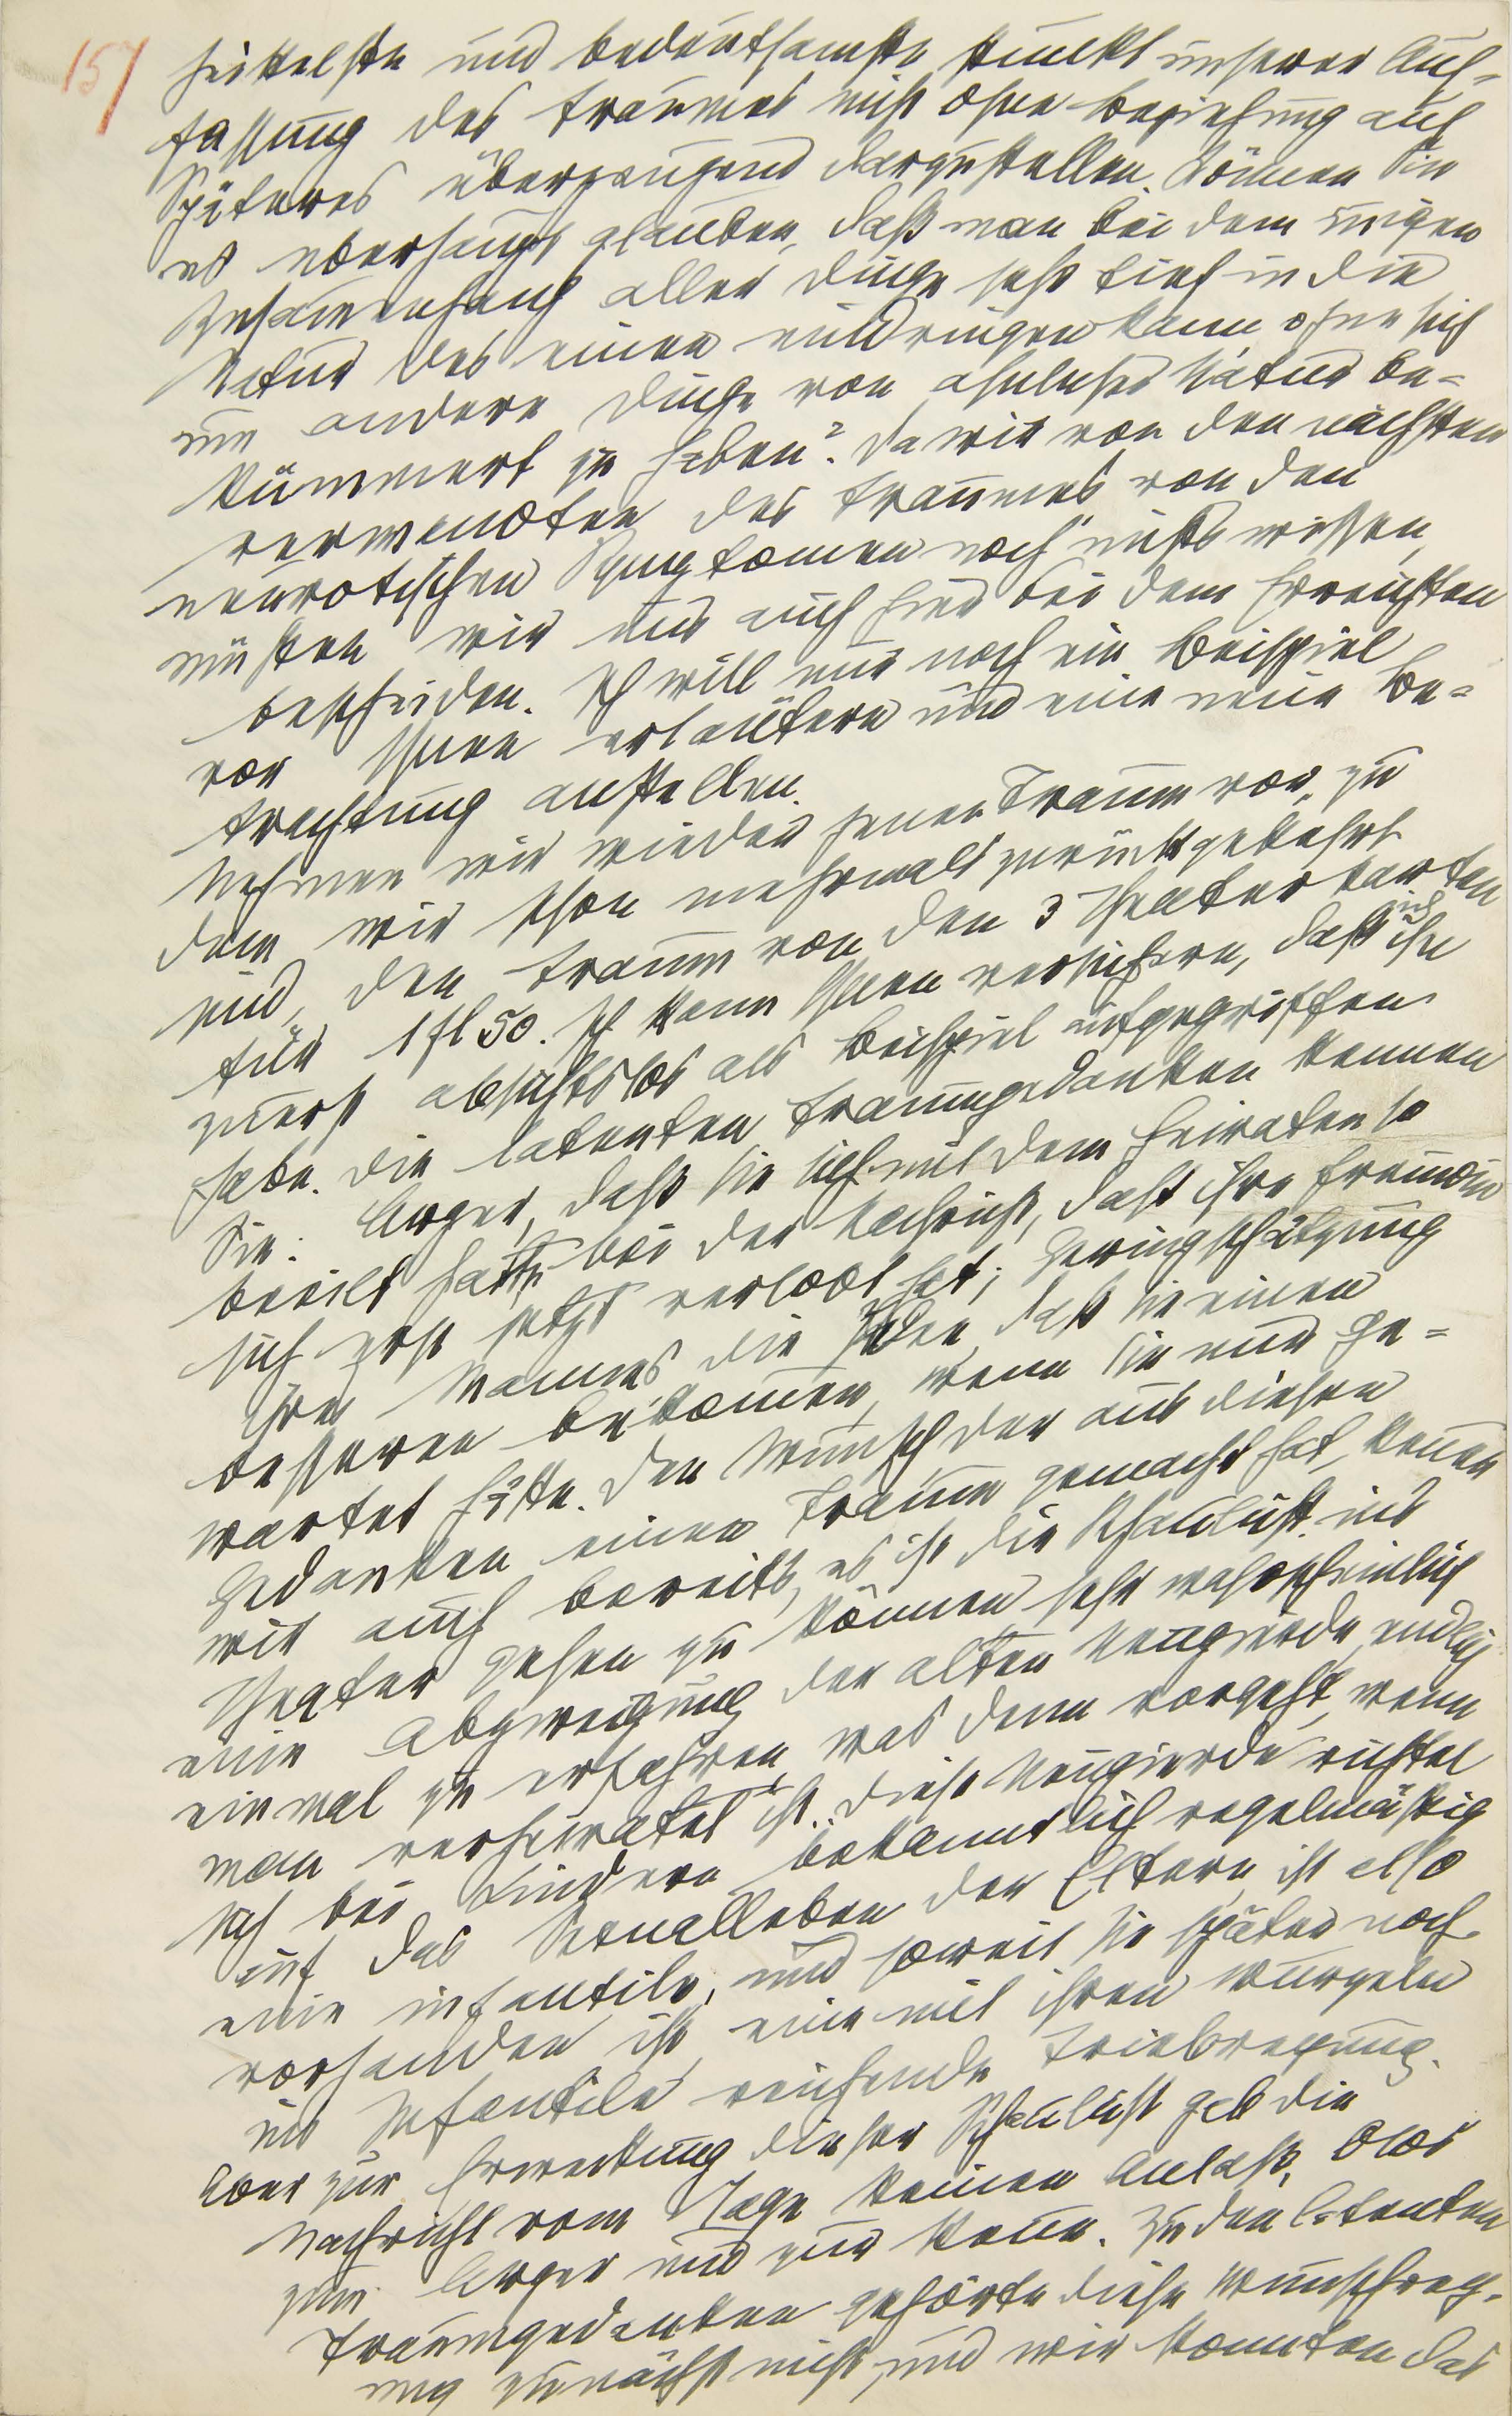 157
heikelste und bedeutsamste Punkt unserer Auf-
fassung des Traumes nicht ohne Beziehung auf
Späteres überzeugend darzustellen. Können Sie
es überhaupt glauben, daß man bei dem innigen
Zusammenhang aller Dinge sehr tief in die
Natur des einen eindringen kann ohne sich
um andere Dinge von ähnlicher Natur be-
kümmert zu haben? Da wir von den nächsten
Verwandten des Traumes, von den
neurotischen Symptomen noch nichts wissen,
müssen wir uns auch hier bei dem Erreichten
bescheiden. Ich will nur noch ein Beispiel
vor Ihnen erläutern und eine neue Be-
trachtung anstellen.
Nehmen wir wieder jenen Traum vor, zu
dem wir schon mehrmals zurückgekehrt
sind, den Traum von den 3 Theaterkarten
für 1 fl 50. Ich kann Ihnen versichern, daß ich ihn
zuerst absichtslos als Beispiel aufgegriffen
habe. Die latenten Traumgedanken kennen
Sie: Ärger, daß sie sich mit dem Heiraten so
beeilt hatte bei der Nachricht, daß ihre Freundin
sich erst jetzt verlobt hat; Geringschätzung
ihres Mannes, die Idee, daß sie einen
besseren bekommen, wenn sie nur ge-
wartet hätte. Den Wunsch der aus diesen
Gedanken einen Traum gemacht hat, kennen
wir auch bereits, es ist die Schaulust, ins
Theater gehen zu können, sehr wahrscheinlich
eine Abzweigung der alten Neugierde, endlich
einmal zu erfahren, was denn vorgeht, wenn
man verheiratet ist. Diese Neugierde richtet
sich bei Kindern bekanntlich regelmäßig
auf das Sexualleben der Eltern, ist also
eine infantile, und soweit sie später noch
vorhanden ist, eine mit ihren Wurzeln
ins Infantile reichende Triebregung.
Aber zur Erweckung dieser Schaulust gab die
Nachricht vom Tage keinen Anlaß, blos
zum Ärger und zur Reue. Zu den latenten
Traumgedanken gehörte diese Wunschreg-
ung zunächst nicht, und wir konnten das